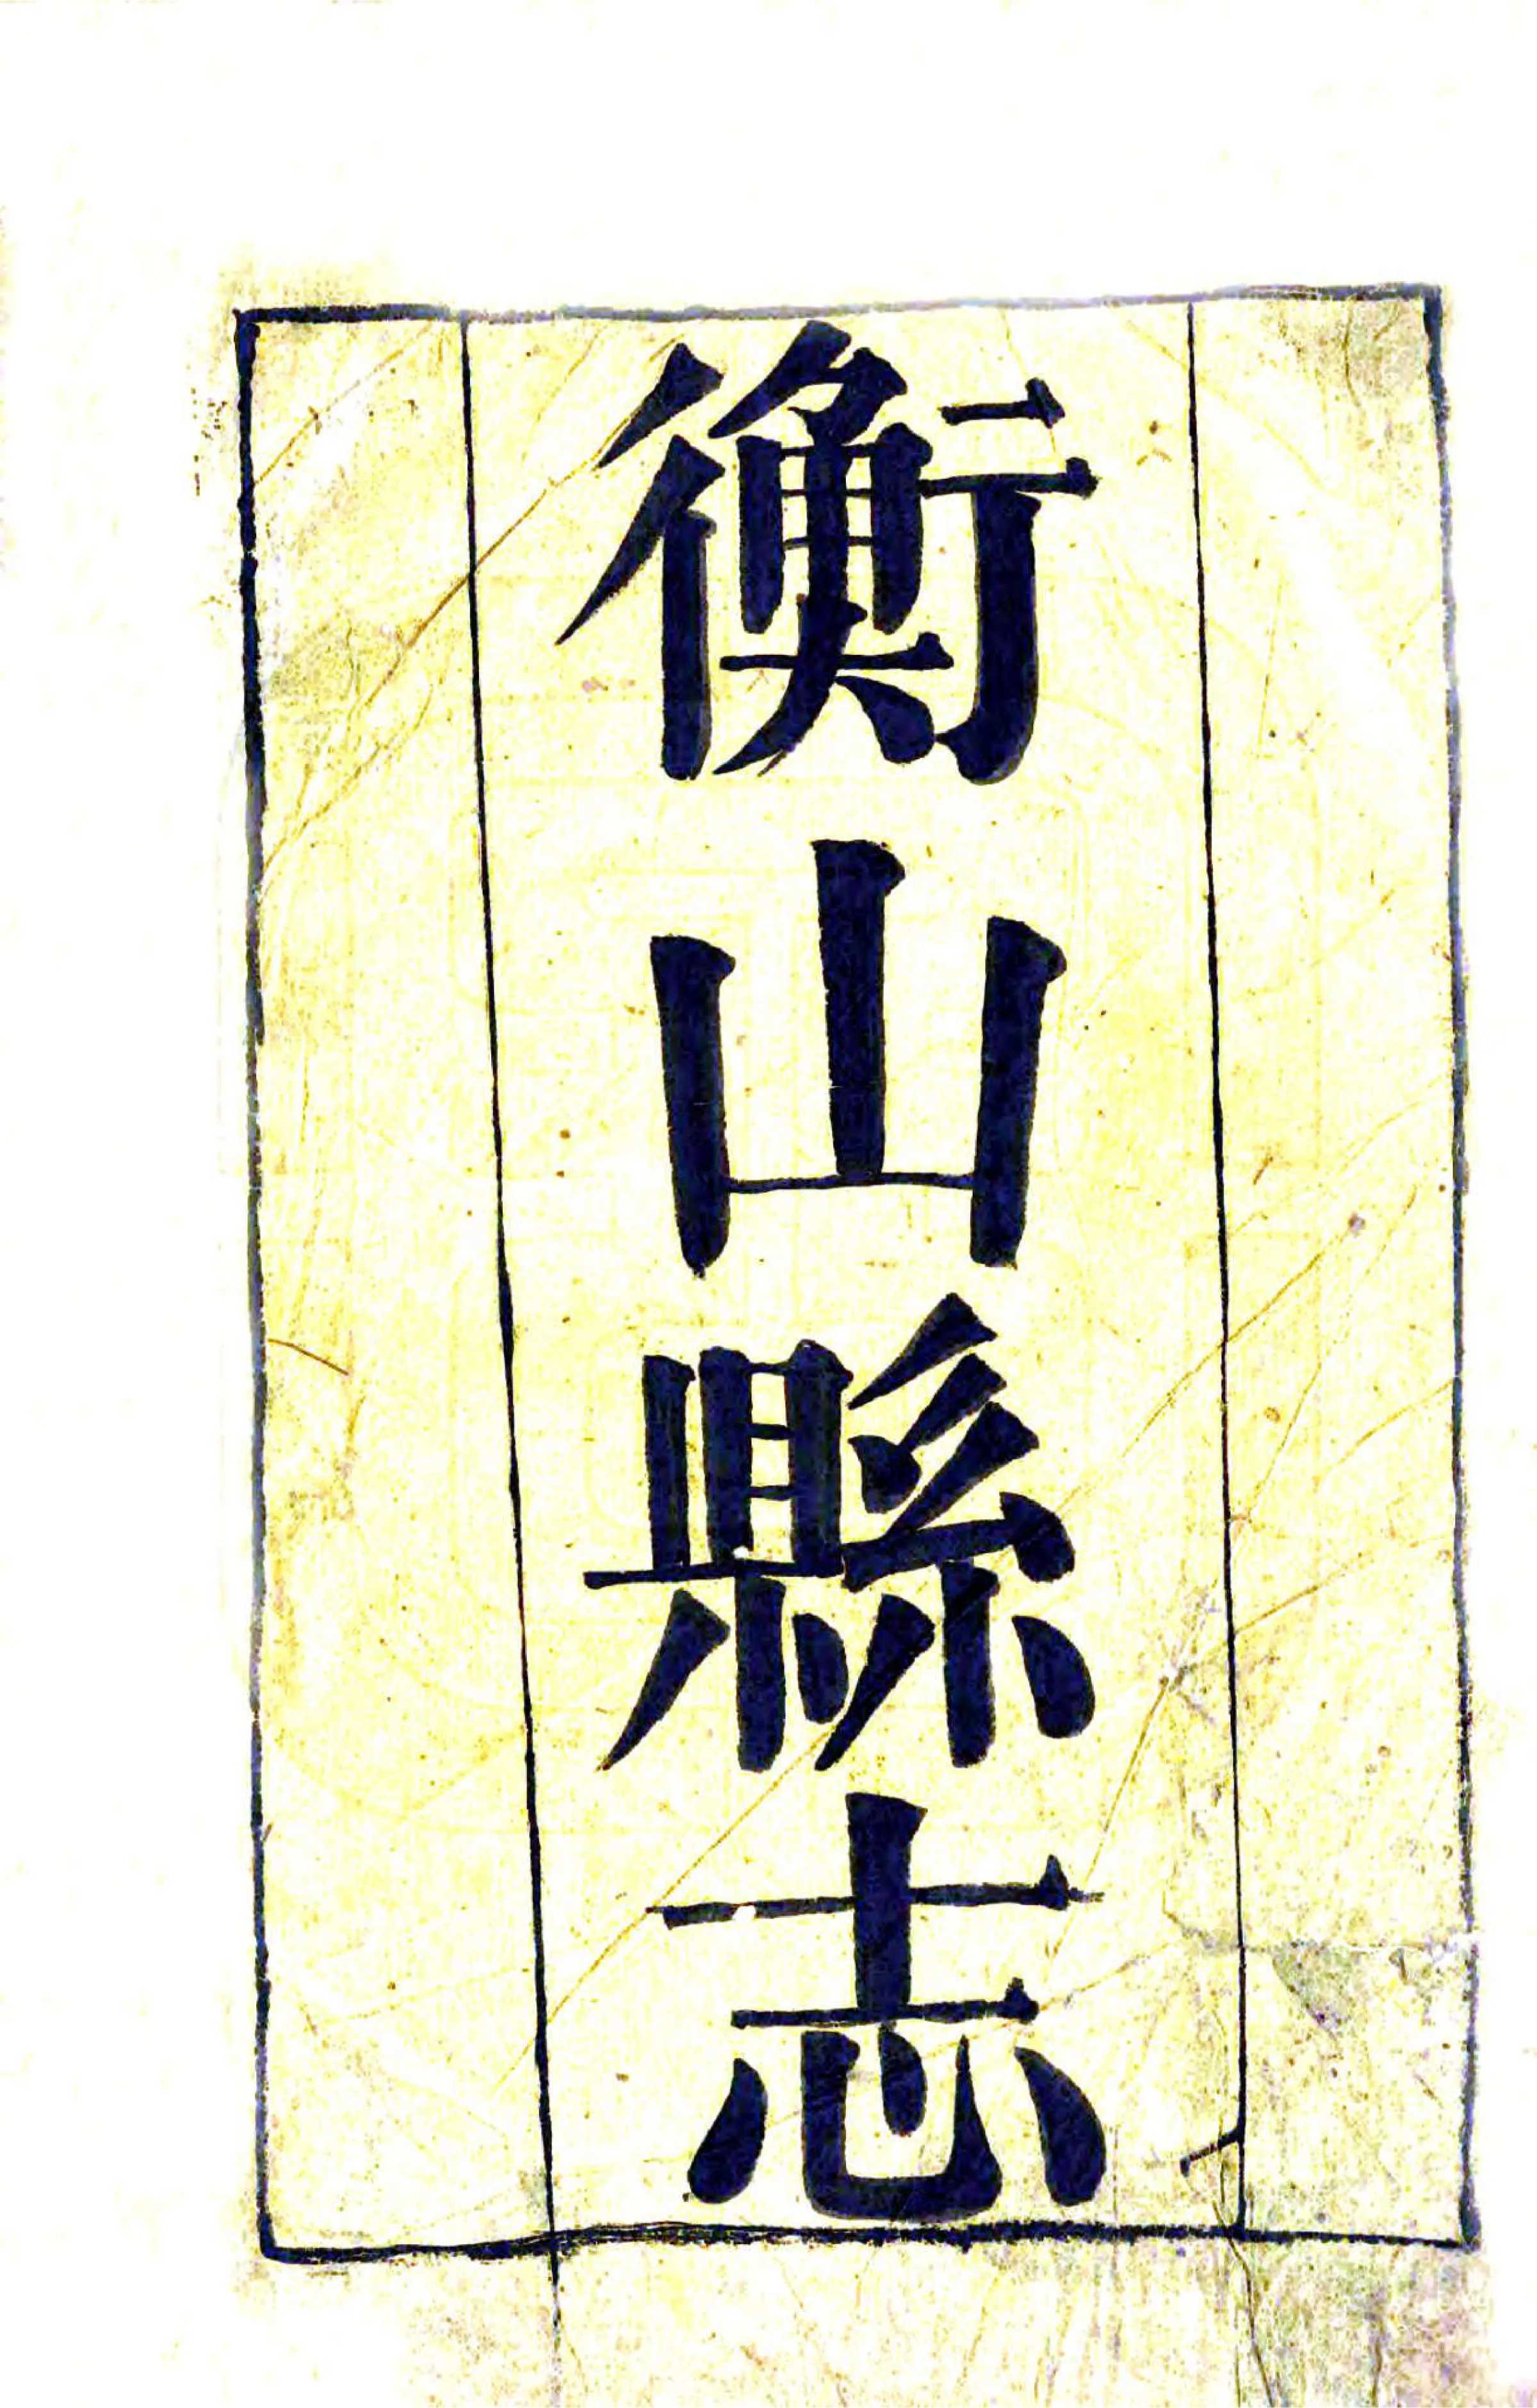 衡山縣志